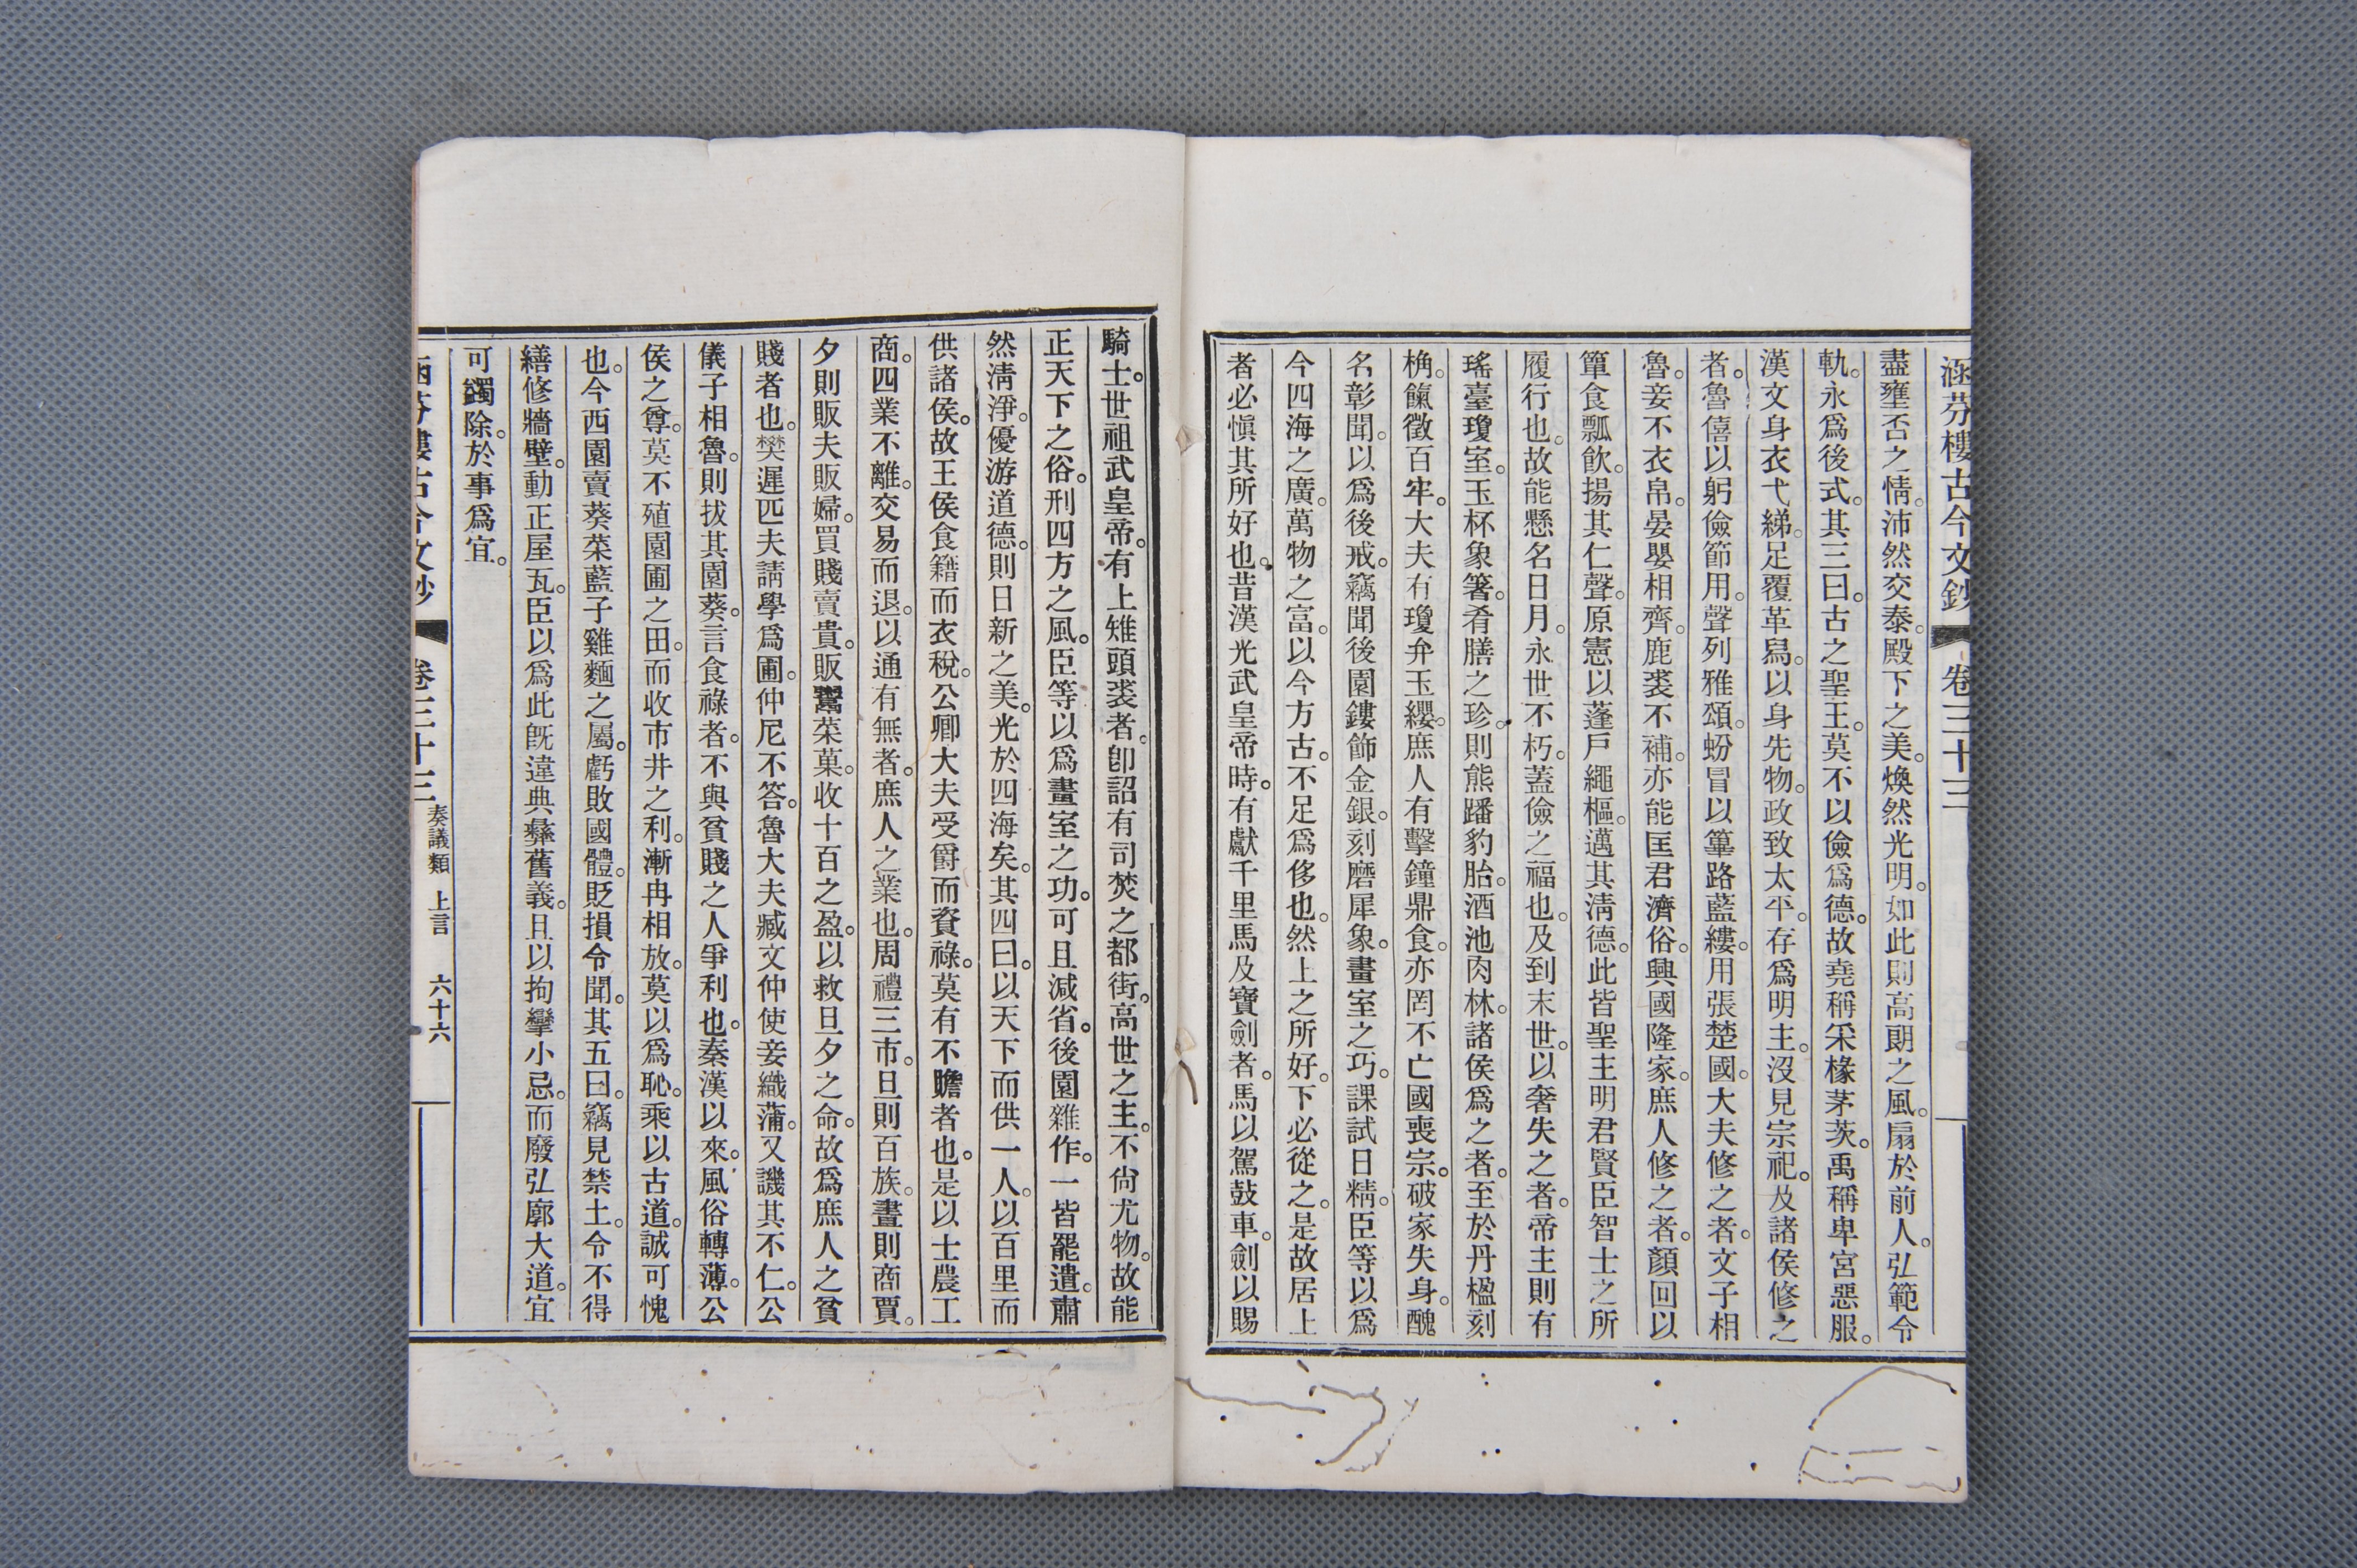 涵芬樓古今文鈔 卷三十三
盡壅否之情。沛然交泰。殿下之美。煥然光明。如此則高朗之風。扇於前人。弘範令
軌。永爲後式。其三曰。古之聖王。莫不以儉爲德。故堯稱采椽茅茨。禹稱卑宮惡服。
漢文身衣弋綈。足覆革舄。以身先物。政致太平。存爲明主。沒見宗祀。及諸侯修之
者。魯僖以躬儉節用。聲列雅頌。蚡冒以篳路藍縷。用張楚國。大夫修之者。文子相
魯。妾不衣帛。晏嬰相齊。鹿裘不補。亦能匡君濟俗。興國隆家。庶人修之者。顏回以
簞食瓢飲。揚其仁聲。原憲以蓬戶繩樞。邁其淸德。此皆聖主明君賢臣智士之所
履行也。故能懸名日月。永世不朽。蓋儉之福也。及到末世。以奢失之者。帝主則有
瑤臺瓊室。玉杯象箸。肴膳之珍。則熊蹯豹胎。酒池肉林。諸侯爲之者。至於丹楹刻
桷。餼徵百牢。大夫有瓊弁玉纓。庶人有擊鐘鼎食。亦罔不亡國喪宗。破家失身。醜
名彰聞。以爲後戒。竊聞後園鏤飾金銀。刻磨犀象。畫室之巧。課試日精。臣等以爲
今四海之廣。萬物之富。以今方古。不足爲侈也。然上之所好。下必從之。是故居上
者必愼其所好也。昔漢光武皇帝時。有獻千里馬及寶劍者。馬以駕鼓車。劍以賜
騎士。世祖武皇帝。有上雉頭裘者。卽詔有司焚之都街。高世之主。不尙尤物。故能
正天下之俗。刑四方之風。臣等以爲畫室之功。可且減省。後園雜作。一皆罷遣。肅
然淸淨。優游道德。則日新之美。光於四海矣。其四曰。以天下而供一人。以百里而
供諸侯。故王侯食籍而衣稅。公卿大夫受爵而資祿。莫有不贍者也。是以士農工
商。四業不離。交易而退。以通有無者。庶人之業也。周禮三市。旦則百族。晝則商賈。
夕則販夫販婦。買賤賣貴。販鬻菜菓。收十百之盈。以救旦夕之命。故爲庶人之貧
賤者也。樊遲匹夫請學爲圃。仲尼不答。魯大夫臧文仲使妾織蒲。又譏其不仁。公
儀子相魯。則拔其園葵。言食祿者。不與貧賤之人爭利也。秦漢以來。風俗轉薄。公
侯之尊。莫不殖園圃之田。而收市井之利。漸冉相放。莫以爲恥。乘以古道。誠可愧
也。今西園賣葵菜藍子雞麵之屬。虧敗國體。貶損令聞。其五曰。竊見禁土。令不得
繕修牆壁。動正屋瓦。臣以爲此旣違典彝舊義。且以拘攣小忌。而廢弘廓大道。宜
可蠲除。於事爲宜。
涵芬樓古今文鈔 卷三十三 奏議類 上言 六十六